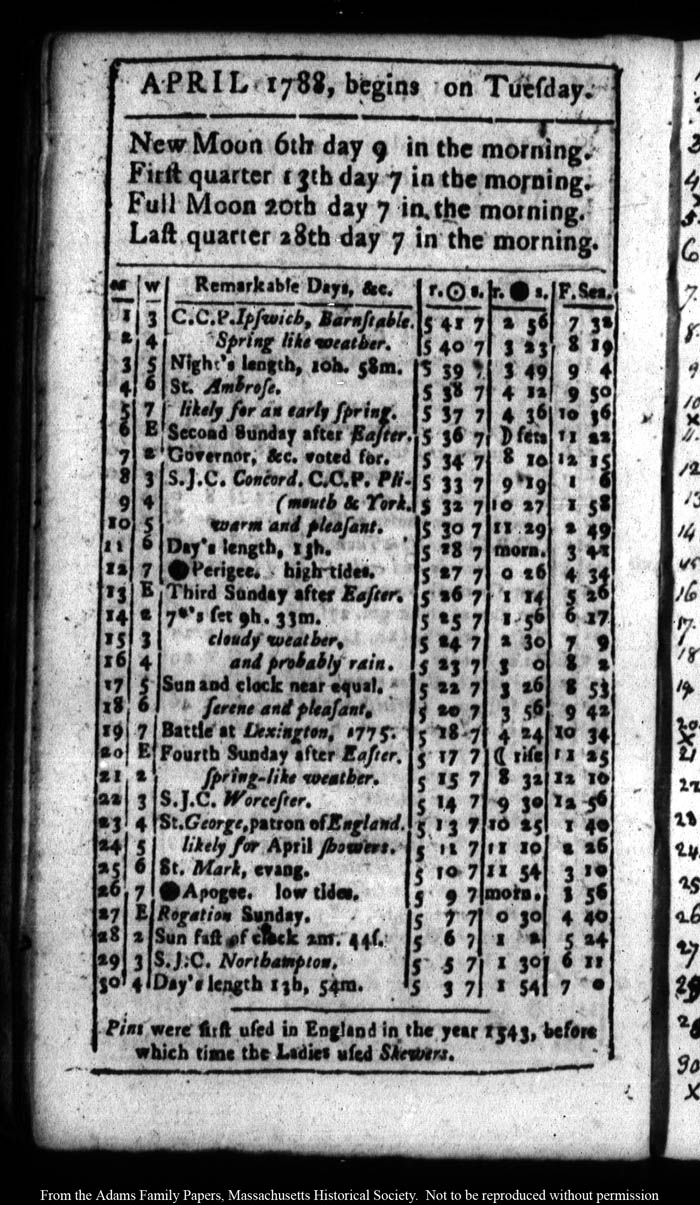 APRIL 1788, begins on Tueſday.
New Moon 6th day 9 in the morning.
Firſt quarter 13th day 7 in the morning.
Full Moon 20th day 7 in the morning.
Laſt quarter 28th day 7 in the morning.
M W Remarkable Days, &c. r. ☉ s. r. ● s. F. Sea.
1 3 C.C.P. Ipſwich, Barnſtable. 5 41 7 2 56 7 32
2 4 Spring like weather. 5 40 7 3 23 8 19
3 5 Night's length, 10h. 58m. 5 39 7 3 49 9 4
4 6 St. Ambroſe. 5 38 7 4 12 9 50
5 7 likely for an early ſpring. 5 37 7 4 36 10 36
6 E Second Sunday after Eaſter. 5 36 7 ☽ ſets 11 22
7 2 Governor, &c. voted for. 5 34 7 8 10 12 15
8 3 S.J.C. Concord. C.C.P. Pli- 5 33 7 9 19 1 6
9 4 (mouth & York. 5 32 7 10 27 1 58
10 5 warm and pleaſant. 5 30 7 11 29 2 49
11 6 Day's length, 13h. 5 28 7 morn. 3 42
12 7 ●Perigee. high tides. 5 27 7 0 26 4 34
13 E Third Sunday after Eaſter. 5 26 7 1 14 5 26
14 2 7*'s ſet 9h. 33m. 5 25 7 1 56 6 17
15 3 cloudy weather, 5 24 7 2 30 7 9
16 4 and probably rain. 5 23 7 3 0 8 2
17 5 Sun and clock near equal. 5 22 7 3 26 8 53
18 6 ſerene and pleaſant. 5 20 7 3 56 9 42
19 7 Battle at Lexington, 1775. 5 18 7 4 24 10 34
20 E Fourth Sunday after Eaſter. 5 17 7 ☾ riſe 11 25
21 2 ſpring-like weather. 5 15 7 8 32 12 10
22 3 S.J.C. Worceſter. 5 14 7 9 30 12 56
23 4 St. George, patron of England. 5 13 7 10 25 1 40
24 5 likely for April ſhowers. 5 11 7 11 10 2 26
25 6 St. Mark, evang. 5 10 7 11 54 3 10
26 7 ●Apogee. low tides. 5 9 7 morn. 3 56
27 E Rogation Sunday. 5 7 7 0 30 4 40
28 2 Sun faſt of clock 2m. 44ſ. 5 6 7 1 2 5 24
29 3 S.J.C. Northampton. 5 5 7 1 30 6 11
30 4 Day's length 13h, 54m. 5 3 7 1 54 7 0
Pins were firſt uſed in England in the year 1543, before
which time the Ladies uſed Skewers.
From the Adams Family Papers, Massachusetts Historical Society. Not to be reproduced without permission